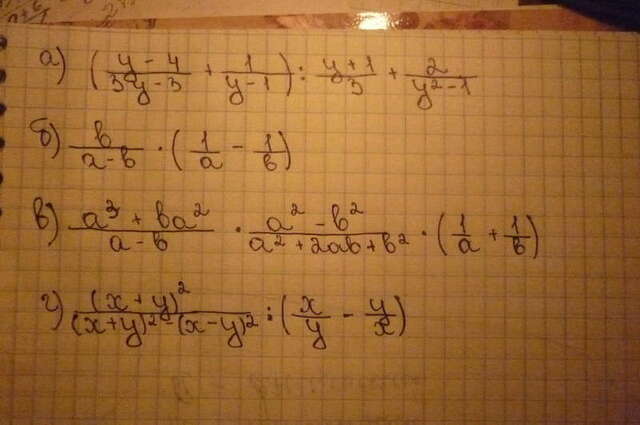 а) ((y-4)/(3y-3) + 1/(y-1)) : (y+1)/3 + 2/(y²-1)
б) b/(a-b) · (1/a - 1/b)
в) (a³+ba²)/(a-b) · (a²-b²)/(a²+2ab+b²) · (1/a + 1/b)
г) (x+y)²/((x+y)²-(x-y)²) : (x/y - y/x)